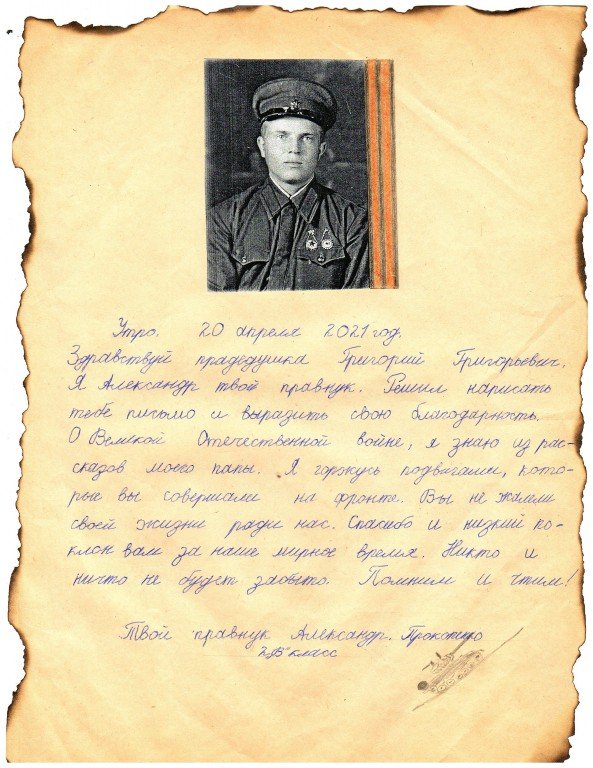 Утро. 20 апреля 2021 год.
Здравствуй прадедушка Григорий Григорьевич.
Я Александр твой правнук. Решил написать
тебе письмо и выразить свою благодарность.
О Великой Отечественной войне, я знаю из рас-
сказов моего папы. Я горжусь подвигами, кото-
рые вы совершали на фронте. Вы не жалели
своей жизни ради нас. Спасибо и низкий по-
клон вам за наше мирное время. Никто и
ничто не будет забыто. Помним и чтим!
Твой правнук Александр.
класс